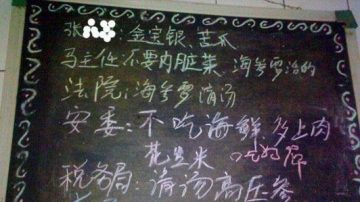 张 金宝银、苦瓜
马主任不要内脏菜、海参要治的
法院：海参要清汤
安委：不吃海鲜多上肉
花生米
税务局：清汤高压参